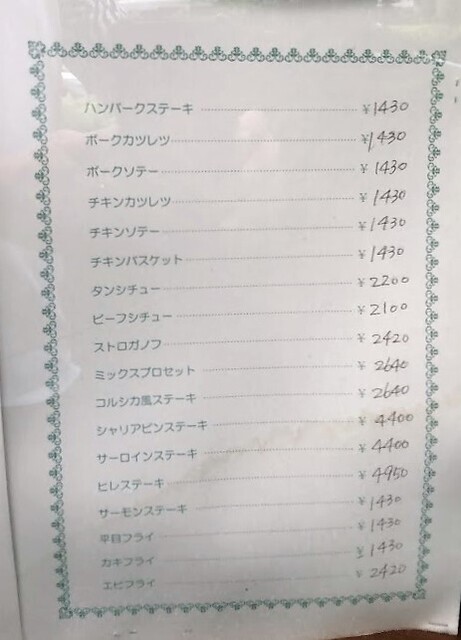 ハンバークステーキ ¥1430
ポークカツレツ ¥1430
ポークソテー ¥1430
チキンカツレツ ¥1430
チキンソテー ¥1430
チキンバスケット ¥1430
タンシチュー ¥2200
ビーフシチュー ¥2100
ストロガノフ ¥2420
ミックスプロセット ¥2640
コルシカ風ステーキ ¥2640
シャリアピンステーキ ¥4400
サーロインステーキ ¥4400
ヒレステーキ ¥4950
サーモンステーキ ¥1430
平目フライ ¥1430
カキフライ ¥1430
エビフライ ¥2420